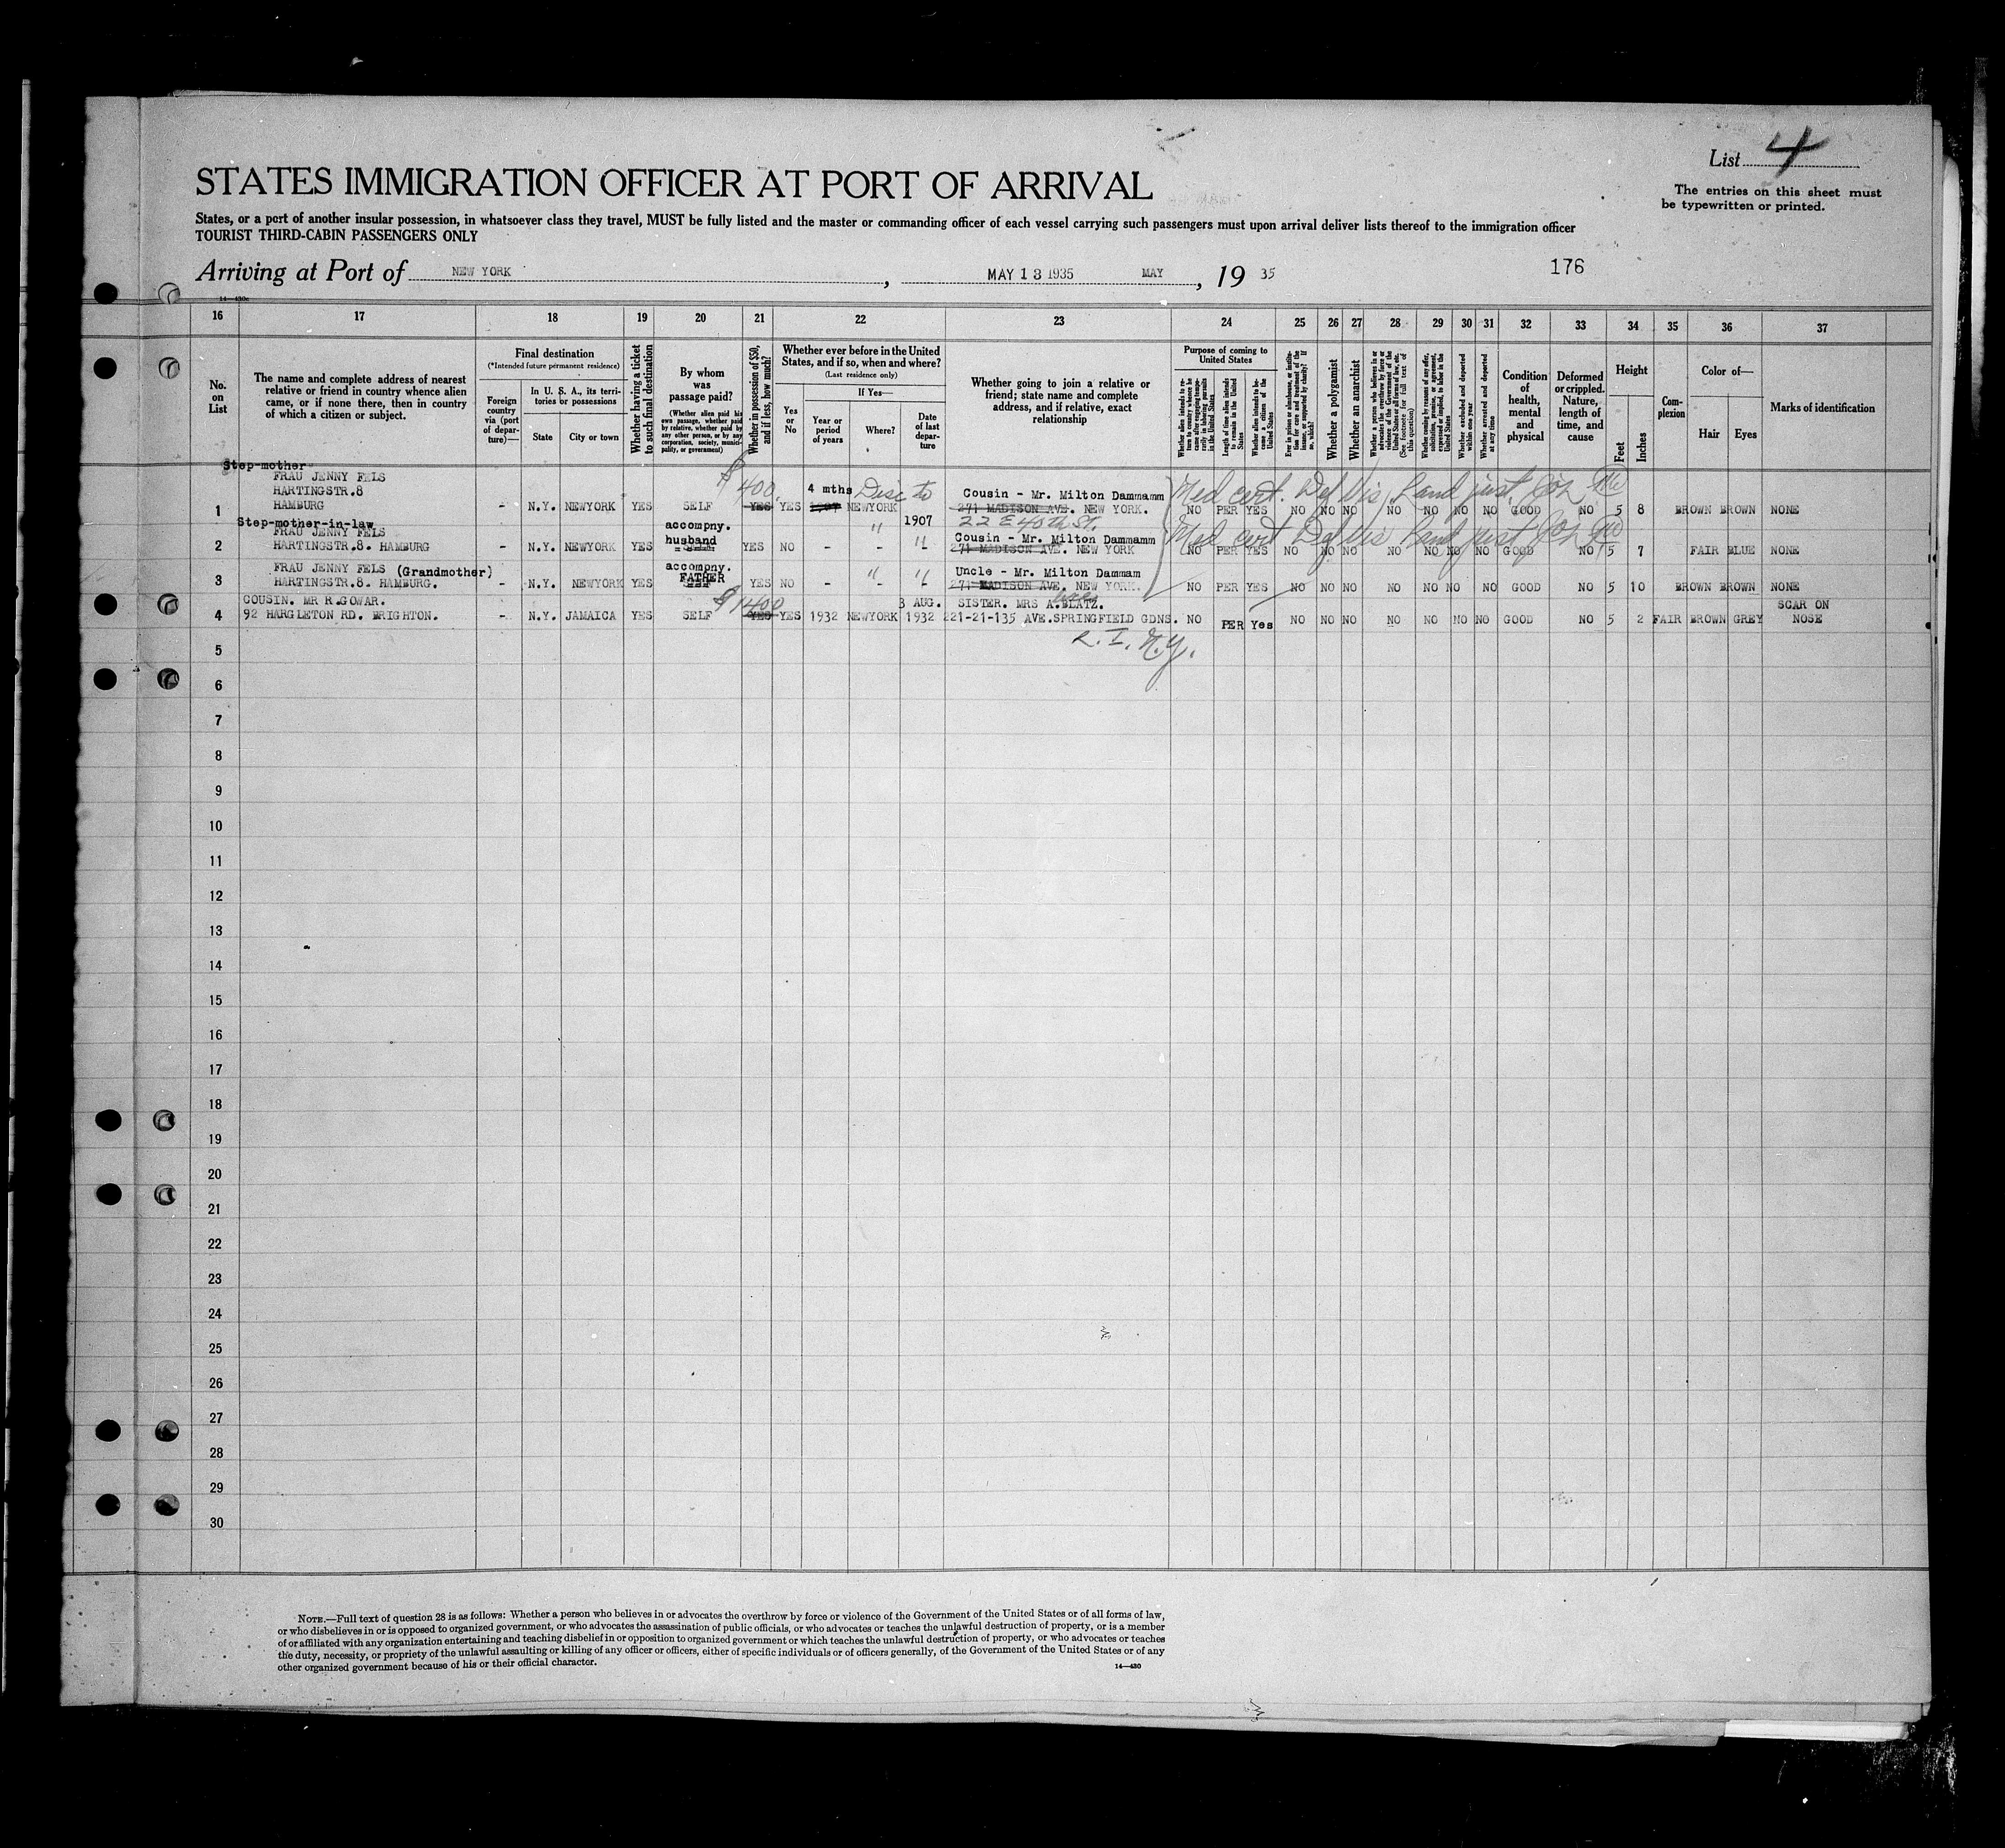 List 4
STATES IMMIGRATION OFFICER AT PORT OF ARRIVAL
The entries on this sheet must
be typewritten or printed.
States, or a port of another insular possession, in whatsoever class they travel, MUST be fully listed and the master or commanding officer of each vessel carrying such passengers must upon arrival deliver lists thereof to the immigration officer
TOURIST THIRD-CABIN PASSENGERS ONLY
Arriving at Port of NEW YORK, MAY 13 1935 MAY, 19 35
176
14—430c
16 17 18 19 20 21 22 23 24 25 26 27 28 29 30 31 32 33 34 35 36 37
No.
on
List
The name and complete address of nearest
relative or friend in country whence alien
came, or if none there, then in country
of which a citizen or subject.
Final destination
(*Intended future permanent residence)
Foreign
country
via (port
of depar-
ture)—
In U. S. A., its terri-
tories or possessions
State
City or town
Whether having a ticket
to such final destination
By whom
was
passage paid?
(Whether alien paid his
own passage, whether paid
by relative, whether paid by
any other person, or by any
corporation, society, munici-
pality, or government)
Whether in possession of $50,
and if less, how much?
Whether ever before in the United
States, and if so, when and where?
(Last residence only)
Yes
or
No
If Yes—
Year or
period
of years
Where?
Date
of last
depar-
ture
Whether going to join a relative or
friend; state name and complete
address, and if relative, exact
relationship
Purpose of coming to
United States
Length of time alien intends
to remain in the United
States
Whether alien intends to be-
come a citizen of the
United States
Whether a polygamist
Whether an anarchist
(See footnote for full text of
this question)
Whether excluded and deported
within one year
Whether arrested and deported
at any time
Condition
of
health,
mental
and
physical
Deformed
or crippled.
Nature,
length of
time, and
cause
Height
Feet
Inches
Com-
plexion
Color of—
Hair
Eyes
Marks of identification
Step-mother
FRAU JENNY FELS
HARTINGSTR.8
HAMBURG
1 - N.Y. NEWYORK YES SELF $400. YES YES 4 mths 1907 NEWYORK 1907 Disc to
Cousin - Mr. Milton Dammamm
271 MADISON AVE. NEW YORK.
22 E 40th St.
Med cert. Def Vis
NO PER YES NO NO NO NO NO NO NO GOOD NO 5 8 BROWN BROWN NONE
Step-mother-in-law
FRAU JENNY FELS
2 HARTINGSTR.8. HAMBURG - N.Y. NEWYORK YES accompny. husband YES NO - - -
Cousin - Mr. Milton Dammamm
271 MADISON AVE. NEW YORK
Med cert Def Vis
NO PER YES NO NO NO NO NO NO NO GOOD NO 5 7 FAIR BLUE NONE
FRAU JENNY FELS (Grandmother)
3 HARTINGSTR.8. HAMBURG. - N.Y. NEWYORK YES accompny. FATHER YES NO - - -
Uncle - Mr. Milton Dammam
271 MADISON AVE. NEW YORK.
NO PER YES NO NO NO NO NO NO NO GOOD NO 5 10 BROWN BROWN NONE
COUSIN. MR R.GOWAR.
4 92 HARGLETON RD. BRIGHTON. - N.Y. JAMAICA YES SELF $1400 YES YES 1932 NEWYORK 3 AUG. 1932
SISTER. MRS A.BLATZ.
221-21-135 AVE.SPRINGFIELD GDNS.
L. I. N.Y.
NO PER Yes NO NO NO NO NO NO NO GOOD NO 5 2 FAIR BROWN GREY SCAR ON NOSE
5
6
7
8
9
10
11
12
13
14
15
16
17
18
19
20
21
22
23
24
25
26
27
28
29
30
NOTE.—Full text of question 28 is as follows: Whether a person who believes in or advocates the overthrow by force or violence of the Government of the United States or of all forms of law,
or who disbelieves in or is opposed to organized government, or who advocates the assassination of public officials, or who advocates or teaches the unlawful destruction of property, or is a member
of or affiliated with any organization entertaining and teaching disbelief in or opposition to organized government or which teaches the unlawful destruction of property, or who advocates or teaches
the duty, necessity, or propriety of the unlawful assaulting or killing of any officer or officers, either of specific individuals or of officers generally, of the Government of the United States or of any
other organized government because of his or their official character.
14—430